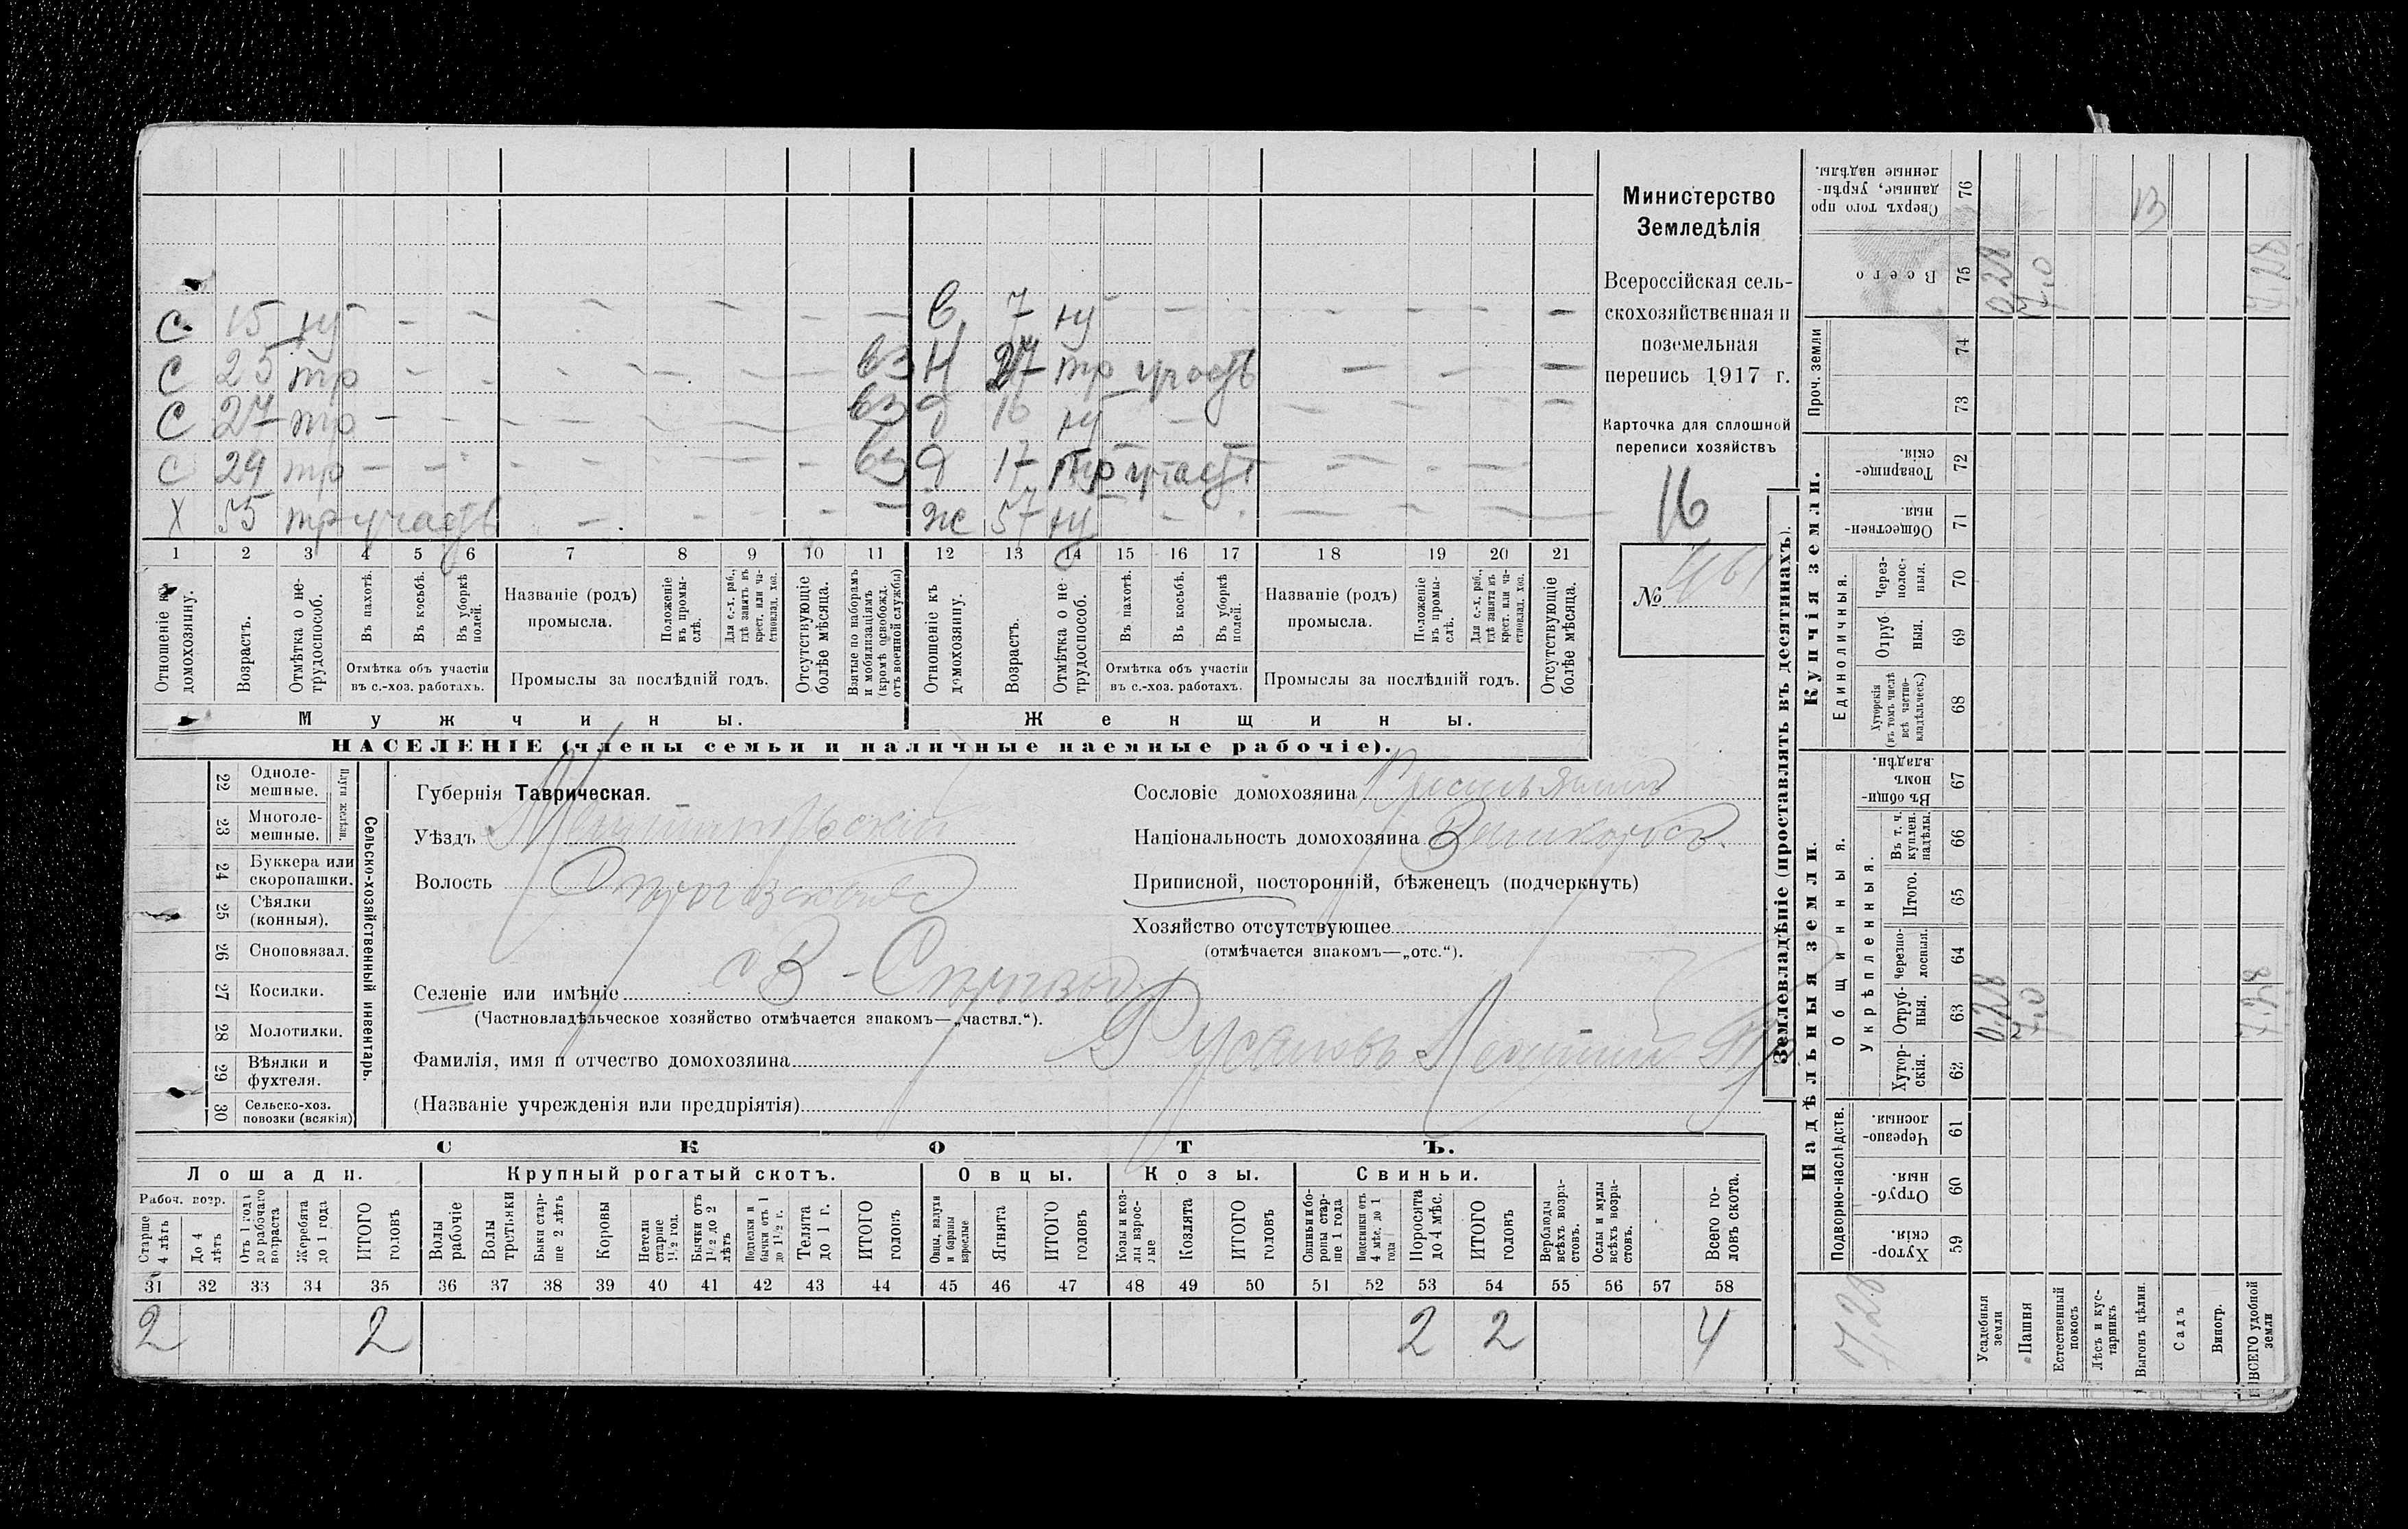 С 15 нӯ - - - - - - - в 7 нӯ - - - - -
С 25 тр - - - - - - - вз Н 27 тр участь - - - -
С 27 тр - - - - - - - вз д 10 нӯ - - - - -
С 29 тр - - - - - - - вз д 17 тр участь - - - -
Х 55 тр участь - - - - - ж 57 нӯ - - - - -
1 2 3 4 5 6 7 8 9 10 11 12 13 14 15 16 17 18 19 20 21
Отношеніе къ домохозяину.
Возрастъ.
Отмѣтка о не-трудоспособ.
Въ пахотѣ.
Въ косьбѣ.
Въ уборкѣ полей.
Отмѣтка объ участіи
въ с.-хоз. работахъ.
Названіе (родъ)
промысла.
Положеніе въ промы-слѣ.
Для с.-х. раб., гдѣ занятъ въ крест. или ча-стновлад. хоз.
Промыслы за послѣдній годъ.
Отсутствующіе болѣе мѣсяца.
Взятые по наборамъ и мобилизаціямъ (кромѣ освобожд. отъ военной службы)
Отношеніе къ домохозяину.
Возрастъ.
Отмѣтка о не трудоспособ.
Въ пахотѣ.
Въ косьбѣ.
Въ уборкѣ полей.
Отмѣтка объ участіи
въ с.-хоз. работахъ.
Названіе (родъ)
промысла.
Положеніе въ промы-слѣ.
Для с.-х. раб., гдѣ занята въ крест. или ча-стновлад. хоз.
Промыслы за послѣдній годъ.
Отсутствующіе болѣе мѣсяца.
Мужчины.
Женщины.
НАСЕЛЕНІЕ (члены семьи и наличные наемные рабочіе).
Министерство
Земледѣлія
Всероссійская сель-
скохозяйственная и
поземельная
перепись 1917 г.
Карточка для сплошной
переписи хозяйствъ
16
№ 461
22 Одноле-мешные.
23 Многоле-мешные.
Плуги желѣзн.
24 Буккера или скоропашки.
25 Сѣялки (конныя).
26 Сноповязал.
27 Косилки.
28 Молотилки.
29 Вѣялки и фухтеля.
30 Сельско-хоз. повозки (всякія)
Сельско-хозяйственный инвентарь.
Губернія Таврическая.
Уѣздъ Мелитопольскій
Волость
Селеніе или имѣніе с В -
(Частновладѣльческое хозяйство отмѣчается знакомъ—„частвл.“).
Фамилія, имя и отчество домохозяина Русановъ
(Названіе учрежденія или предпріятія)
Сословіе домохозяина Крестьянинъ
Національность домохозяина Великоросъ.
Приписной, посторонній, бѣженецъ (подчеркнуть)
Хозяйство отсутствующее
(отмѣчается знакомъ—„отс.“).
СКОТЪ.
Лошади. Крупный рогатый скотъ. Овцы. Козы. Свиньи.
Рабоч. возр.
Старше 4 лѣтъ
До 4 лѣтъ
Отъ 1 года до рабочаго возраста
Жеребята до 1 года
ИТОГО головъ
Волы рабочіе
Волы третьяки
Быки стар-ше 2 лѣтъ
Коровы
Нетели старше 1½ год.
Бычки отъ 1½ до 2 лѣтъ
Подтелки и бычки отъ 1 до 1½ г.
Телята до 1 г.
ИТОГО головъ
Овцы, валухи и бараны взрослые
Ягнята
ИТОГО головъ
Козы и коз-лы взрос-лые
Козлята
ИТОГО головъ
Свиньи и бо-ровы стар-ше 1 года
Подсвинки отъ 4 мѣс. до 1 года
Поросята до 4 мѣс.
ИТОГО головъ
Верблюды всѣхъ возра-стовъ.
Ослы и мулы всѣхъ возра-стовъ.
Всего го-ловъ скота.
31 32 33 34 35 36 37 38 39 40 41 42 43 44 45 46 47 48 49 50 51 52 53 54 55 56 57 58
2 2 2 2 4
Землевладѣніе (проставлять въ десятинахъ).
Надѣльныя земли.
Купчія земли.
Подворно-наслѣдств.
Общинныя.
Укрѣпленныя.
Единоличныя.
Проч. земли
Хутор-скія. 59
Отруб-ныя. 60
Черезпо-лосныя. 61
Хутор-скія. 62
Отруб-ныя. 63
Черезпо-лосныя. 64
Итого. 65
Въ т. ч. куплен. надѣлы. 66
Въ общи-номъ владѣн. 67
Хуторскія (въ томъ числѣ всѣ частно-владѣльческ.) 68
Отруб-ныя. 69
Через-полос-ныя. 70
Обществен-ныя. 71
Товарище-скія. 72
73
74
Всего 75
Сверхъ того про-данные, укрѣп-ленные надѣлы. 76
7,28
Усадебныя земли 0.28 0.28
Пашня 7,0 7,0
Естественный покосъ
Лѣсъ и кус-тарникъ
Выгонъ цѣлин.
Садъ
Виногр.
ВСЕГО удобной земли 7.28 7,28